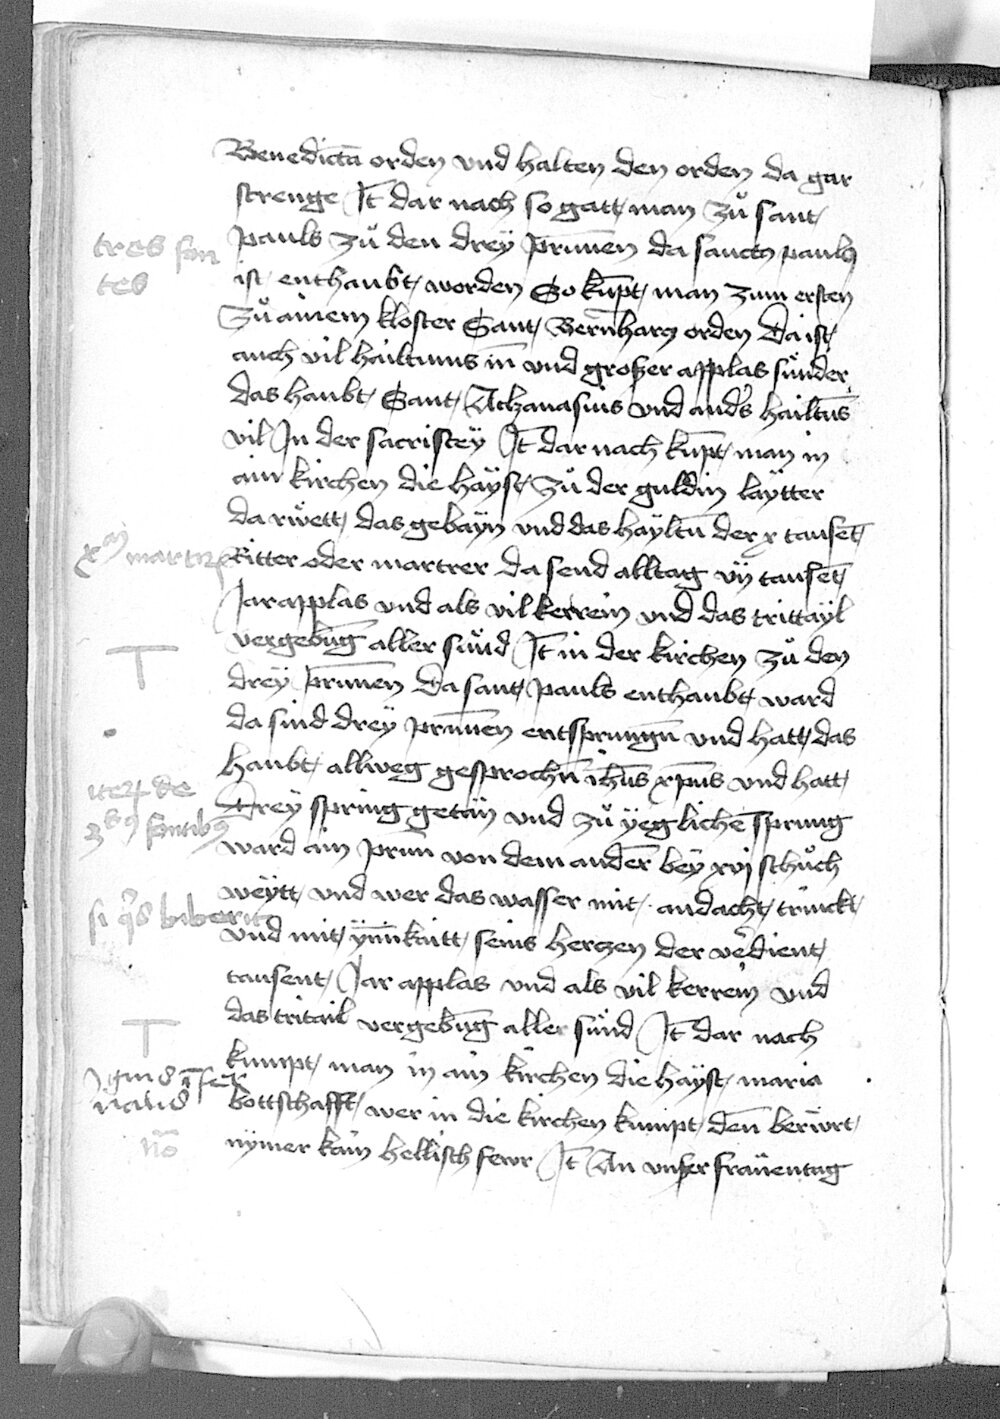 Benedictā orden vnd halten den orden da gar
strenge It̄ dar nach so gatt man zů sant
tres fon
tes
pauls zů den dreÿ prun̄en da sanctus paulꝰ
ist enthaubt worden So kūpt man zum ersten
Zů ainem kloster Sant Bernharcz orden Da ist
auch vil hailtums in̄ vnd groszer applas sunder
das haubt Sant Athanasius vnd anders hailtūs
vil In der sacristeÿ It̄ dar nach kūpt man in
ain kirchen die haÿst zů der guldin laÿtter
da rwett das gebaÿn vnd das haÿltū der x tausēt
xᵐ martir
Ritter oder martrer da send alltag vij tausēt
Jar applas vnd als vil kerrein vnd das trittaÿl
T
vergebūg aller sünd It̄ in der kirchen zů den
dreÿ prun̄en Da sant pauls enthaubt ward
da sind dreÿ prun̄en entsprungn̄ vnd hatt das
haubt allweg gesprochn̄ ihūs xp̄us vnd hatt
item de
3bꝰ fontibꝰ
Dreÿ spring getan vnd zů ÿeglichē sprung
ward ain prun von dem ander beÿ xvj schůch
si qͥs biberit
weÿtt vnd wer das wasser mit andacht trinckt
vnd mit ÿn̄ikaitt seins herczen der vēdient
tausent Jar applas vnd als vil kerrein vnd
T
das tritail vergebūg aller sünd It̄ dar nach
kumpt man in ain kirchen die haÿst maria
ignis īfer
nalis
bottschafft wer in die kirchen kumpt den̄ berwrt
nō
nÿmer kain hellisch fewr It̄ An vnszer frauentag